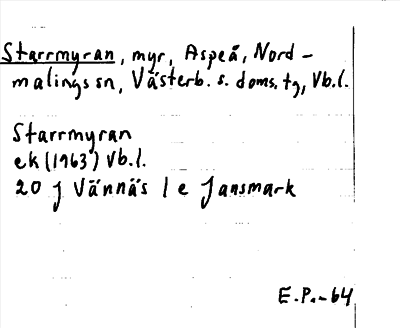 Starrmyran, myr, Aspeå, Nord-
malings sn, Västerb. s. doms. tg, Vb.l.
Starrmyran
ek (1963) Vb.l.
20 J Vännäs l e Jansmark
E.P.-64